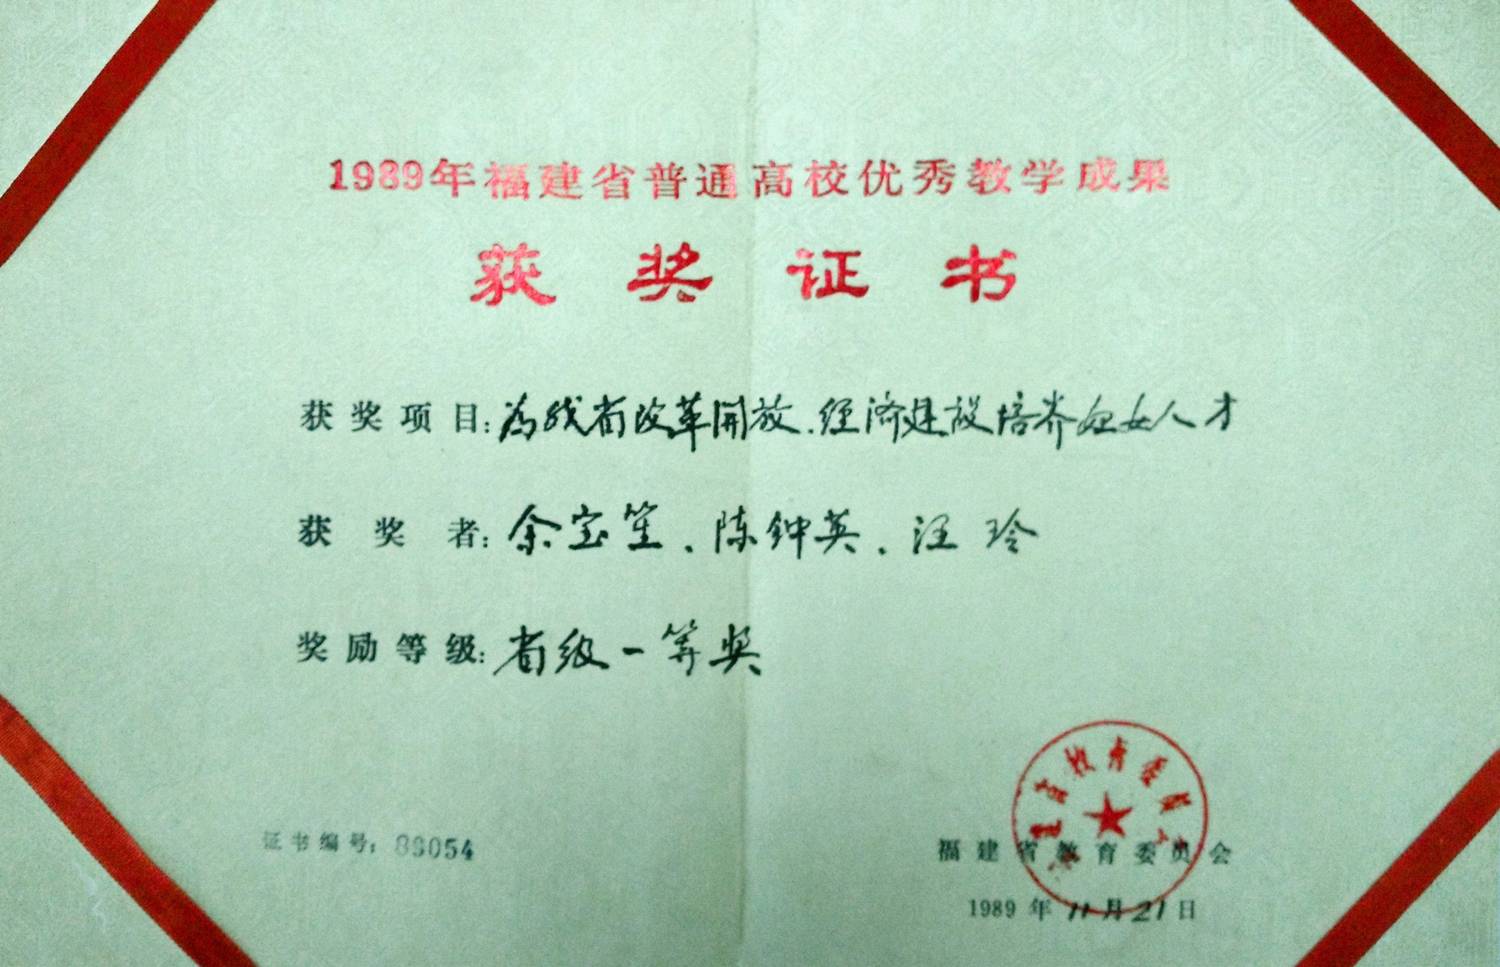 1989年福建省普通高校优秀教学成果
获奖证书
获奖项目:为我省改革开放、经济建设培养妇女人才
获奖者:余宝笙、陈钟英、汪玲
奖励等级:省级一等奖
证书编号:89054
福建省教育委员会
福建省教育委员会
1989年11月21日